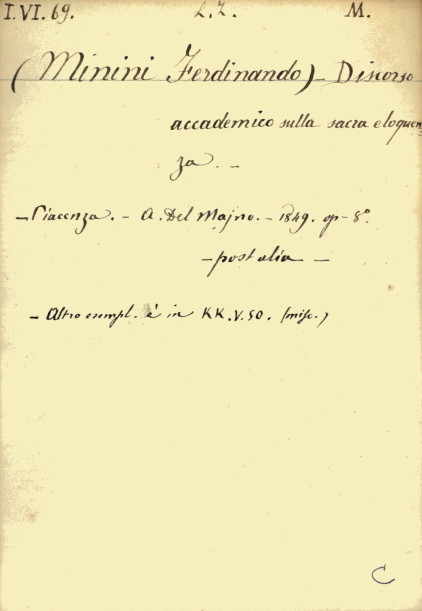 I.VI.69. L.Z. M.
(Minini Ferdinando) - Discorso
accademico sulla sacra eloquen
za. -
- Piacenza. - A. Del Majno. - 1849. op - 8°.
- post alia -
- Altro esempl. è in KK.V.50. (misc.)
C